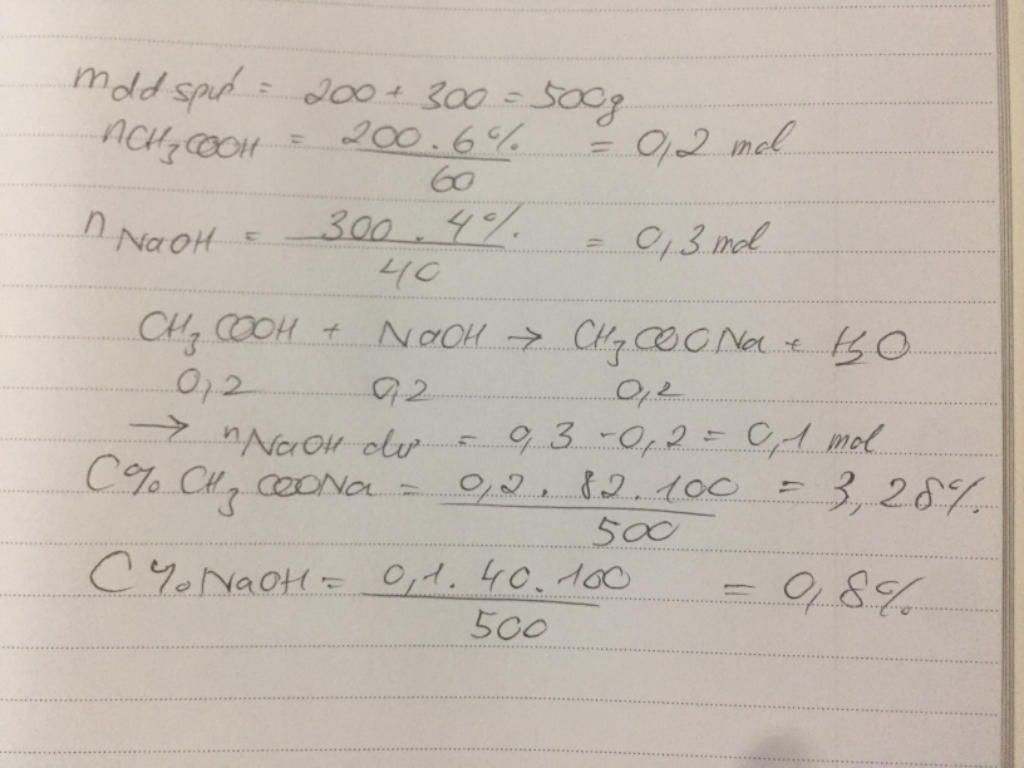 mdd spứ = 200 + 300 = 500g
nCH₃COOH = 200 . 6% / 60 = 0,2 mol
nNaOH = 300 . 4% / 40 = 0,3 mol
CH₃COOH + NaOH → CH₃COONa + H₂O
0,2 0,2 0,2
→ nNaOH dư = 0,3 - 0,2 = 0,1 mol
C% CH₃COONa = 0,2 . 82 . 100 / 500 = 3,28%
C% NaOH = 0,1 . 40 . 100 / 500 = 0,8%